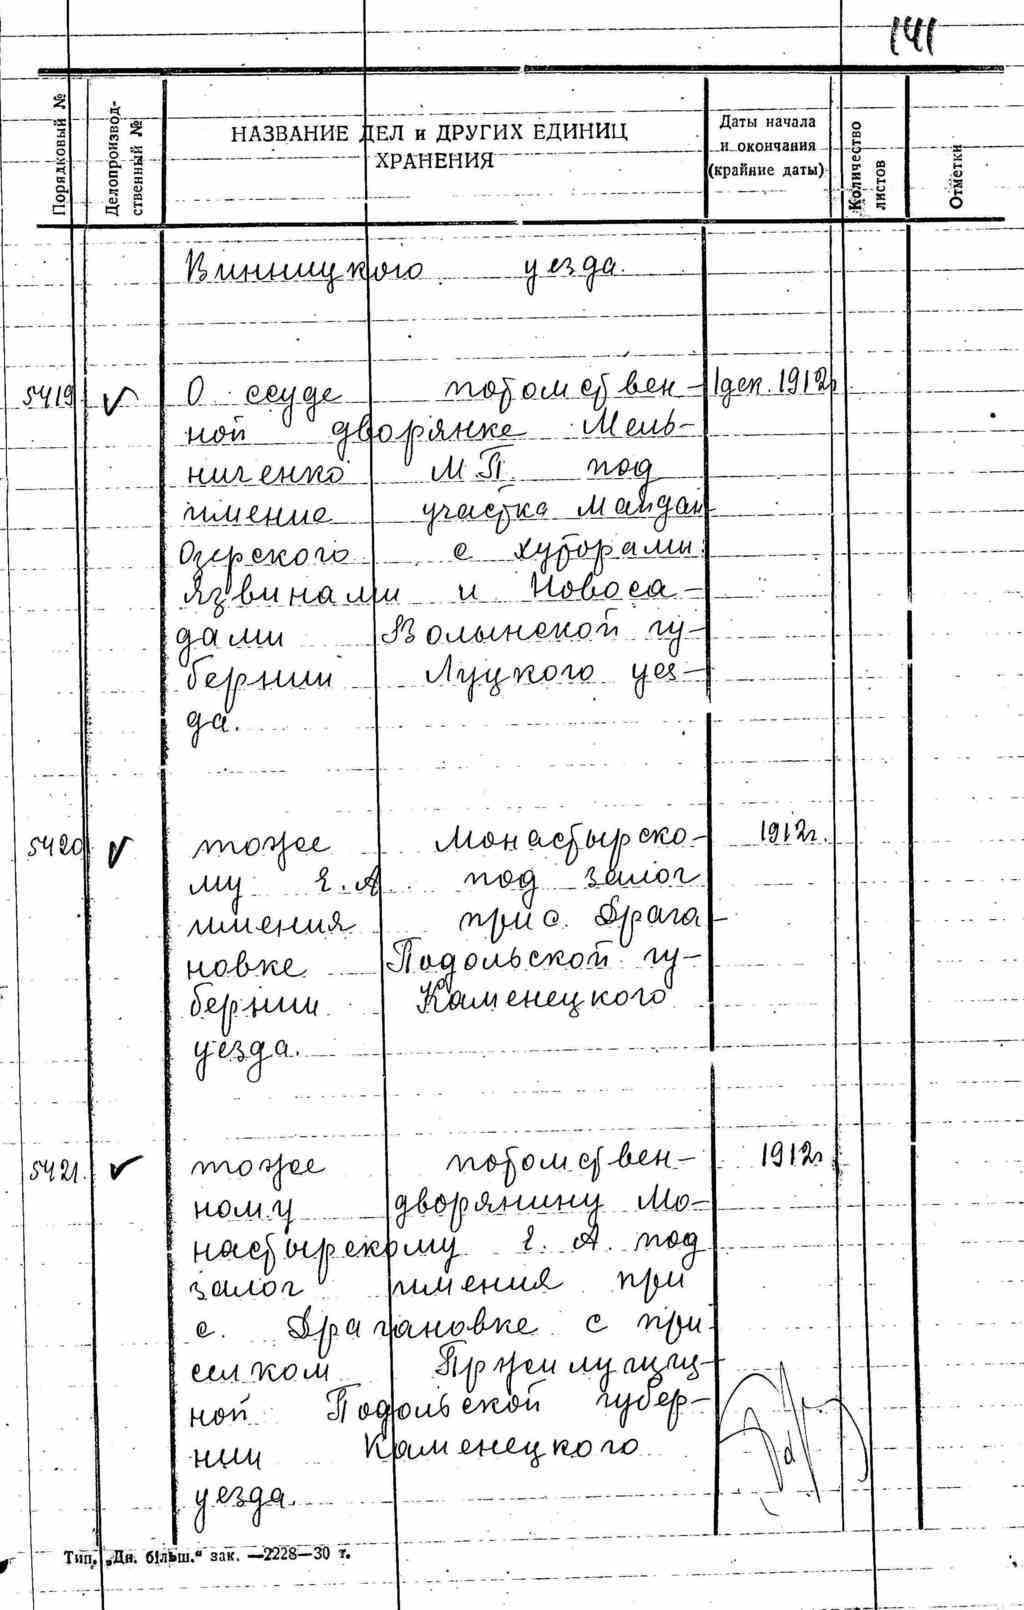 141
Порядковый №
Делопроизвод-
ственный №
НАЗВАНИЕ ДЕЛ и ДРУГИХ ЕДИНИЦ
ХРАНЕНИЯ
Даты начала
и окончания
(крайние даты)
Количество
листов
Отметки
Винницкого уезда.
5419 ✓ О ссуде потомствен- 1 дек. 1912г
ной дворянке Мель-
ниченко М П под
имение участка Майдан
Озерского с хуторами
Язвинами и Новоса-
дами Волынской гу-
бернии Луцкого уез-
да.
5420 ✓ тоже Монастырско- 1912г.
му Е. А. под залог
имения при с. Драга
новке Подольской гу-
бернии Каменецкого
уезда.
5421. ✓ тоже потомствен- 1912г
ному дворянину Мо-
настырскому Е. А. под
залог имения при
с. Драгановке с при
селком
ной Подольской губер-
нии Каменецкого
уезда.
Тип. „Дн. більш.“ зак. —2228—30 т.